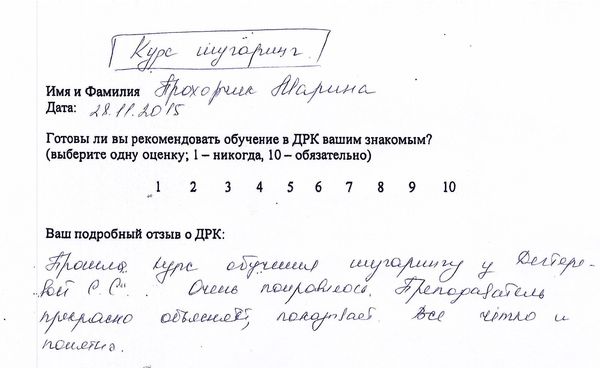 Курс шугаринг.
Имя и Фамилия Прохорчик Марина
Дата: 28.11.2015
Готовы ли вы рекомендовать обучение в ДРК вашим знакомым?
(выберите одну оценку; 1 – никогда, 10 – обязательно)
1 2 3 4 5 6 7 8 9 10
Ваш подробный отзыв о ДРК:
Прошла курс обучения шугарингу у Дегтере-
вой С.С. Очень понравилось. Преподаватель
прекрасно объясняет, показывает. Все чётко и
понятно.